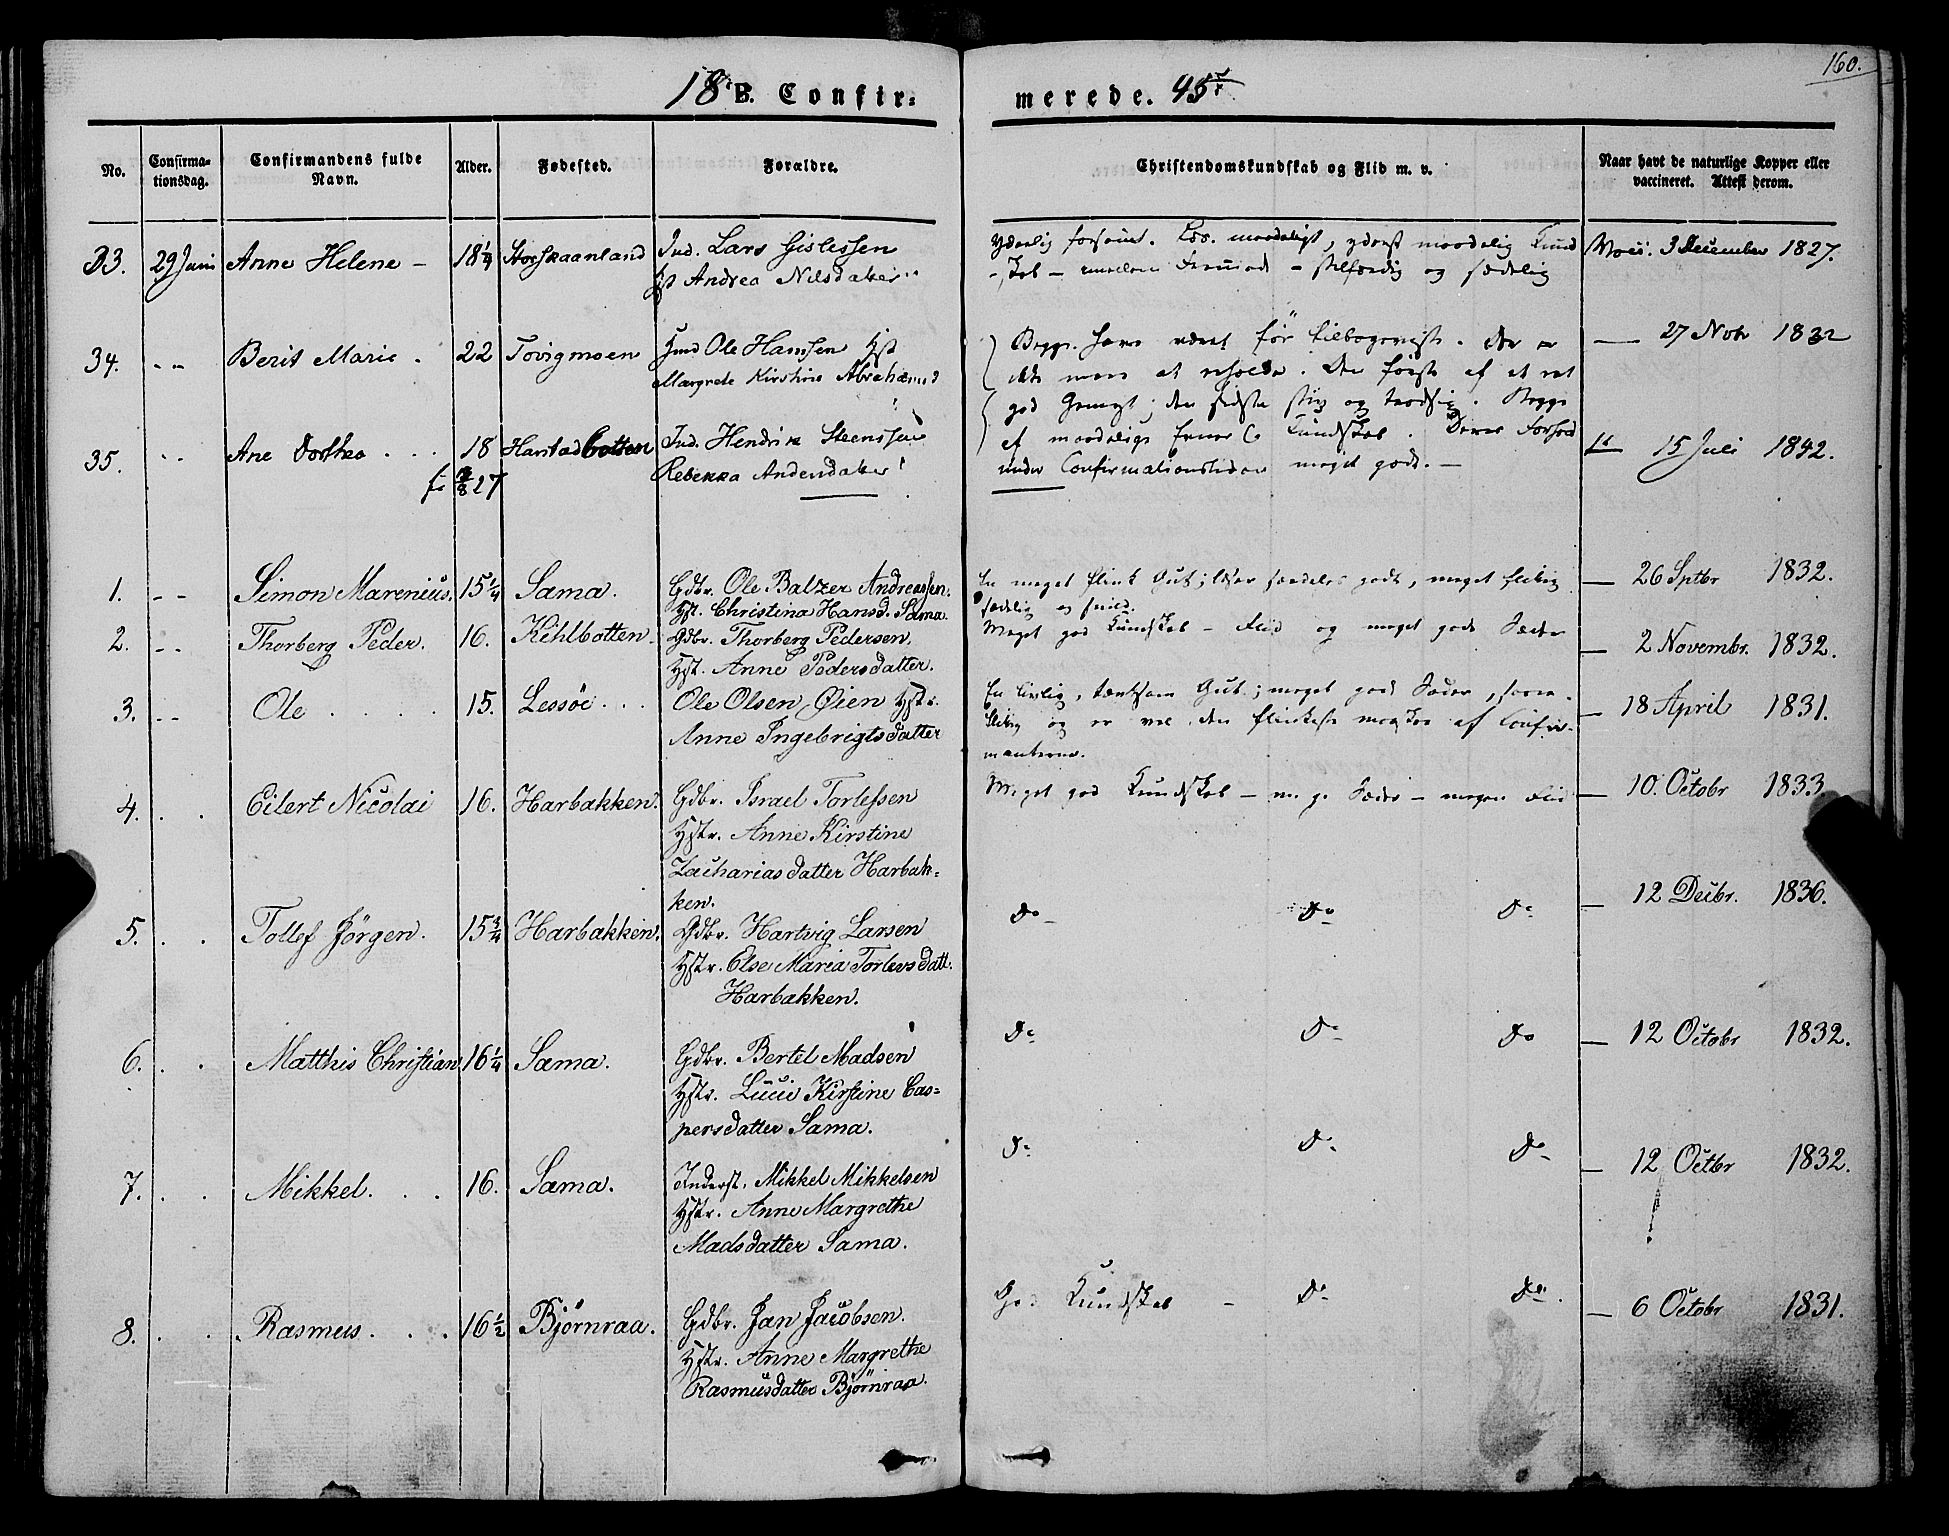 160.
18 B. Confir: merede. 45
No. Confirma-tionsdag. Confirmandens fulde Navn. Alder. Fødested. Forældre. Christendomskundskab og Flid m. v. Naar havt de naturlige Kopper eller vaccineret. Attest derom.
33. 29 Juni Anne Helene - 18 1/4 Storskaanland Ind. Lars Gislessen
Andrea Nilsdatter
maadeligt, yderst maadelig Kund
-skab - stilfærdig og sædelig
3 December 1827.
34. - - Berit Marie. 22 Tovigmoen Hmd Ole Hanssen Hst
Margrete Kirstine Abrahamsd
Begge have været før tilbageviist. Der er
ikke mere at udholde. Den første af et ret
god Gemyt; den sidste og trodsig. Begge
af maadelige Evner & Kundskab. Deres Forhold
under Confirmationstiden meget godt. -
— 27 Novbr 1832
35. - - Ane Dorthea . . . 18 Harstadbotten Ind. Hendrik Steenssen
f. 27 Rebekka Andersdatter
15 Juli 1842.
1. - - Simon Marenius. 15 1/4 Sama. Gdbr. Ole Balzer Andreassen.
Hst. Christina Hansd. Sama.
En meget flink Gut; læser særdeles godt, meget flittig
sædelig og
— 26 Sptbr 1832.
2. - - Thorberg Peder. 16. Kihlbotten. Gdbr. Thorberg Pedersen.
Hst. Anne Pedersdatter.
Meget god Kundskab - Flid og meget gode Sæder
— 2 Novembr. 1832.
3. - - Ole . . . . 15. Lessöe . . . Ole Olsen Øien Hstr.
Anne Ingebrigtsdatter
En livlig, tænksom Gut; meget gode Sæder,
flittig og er vel den flinkeste maaskee af Confir-
manterne.
— 18 April 1831.
4. . . Eilert Nicolai 16. Harbakken. Gdbr. Israel Torlefsen
Hstr. Anne Kirstine
Zachariasdatter Harbak-
ken.
Meget god Kundskab - m. g. Sæder - megen Flid
— 10. Octobr 1833.
5. . . Tollef Jörgen. 15 3/4 Harbakken. Gdbr. Hartvig Larsen
Hstr. Else Maria Torlevsdatt.
Harbakken.
Do Do Do
— 12 Decbr. 1836.
6. . . Matthis Christian 16 1/4 Sama. Gdbr. Bertel Madsen
Hstr. Lucie Kirstine Cas-
persdatter Sama.
Do Do Do
— 12 Octobr 1832.
7. . . Mikkel. . . 16. Sama. Inderst. Mikkel Mikkelsen
Hstr. Anne Margrethe
Madsdatter Sama.
Do Do Do
— 12 Octbr 1832.
8. . . Rasmus. . . 16 1/2 Bjørnraa. Gdbr. Jan Jacobsen.
Hstr. Anne Margrethe
Rasmusdatter Bjørnraa.
God Kundskab - Do Do.
— 6 Octobr 1831.